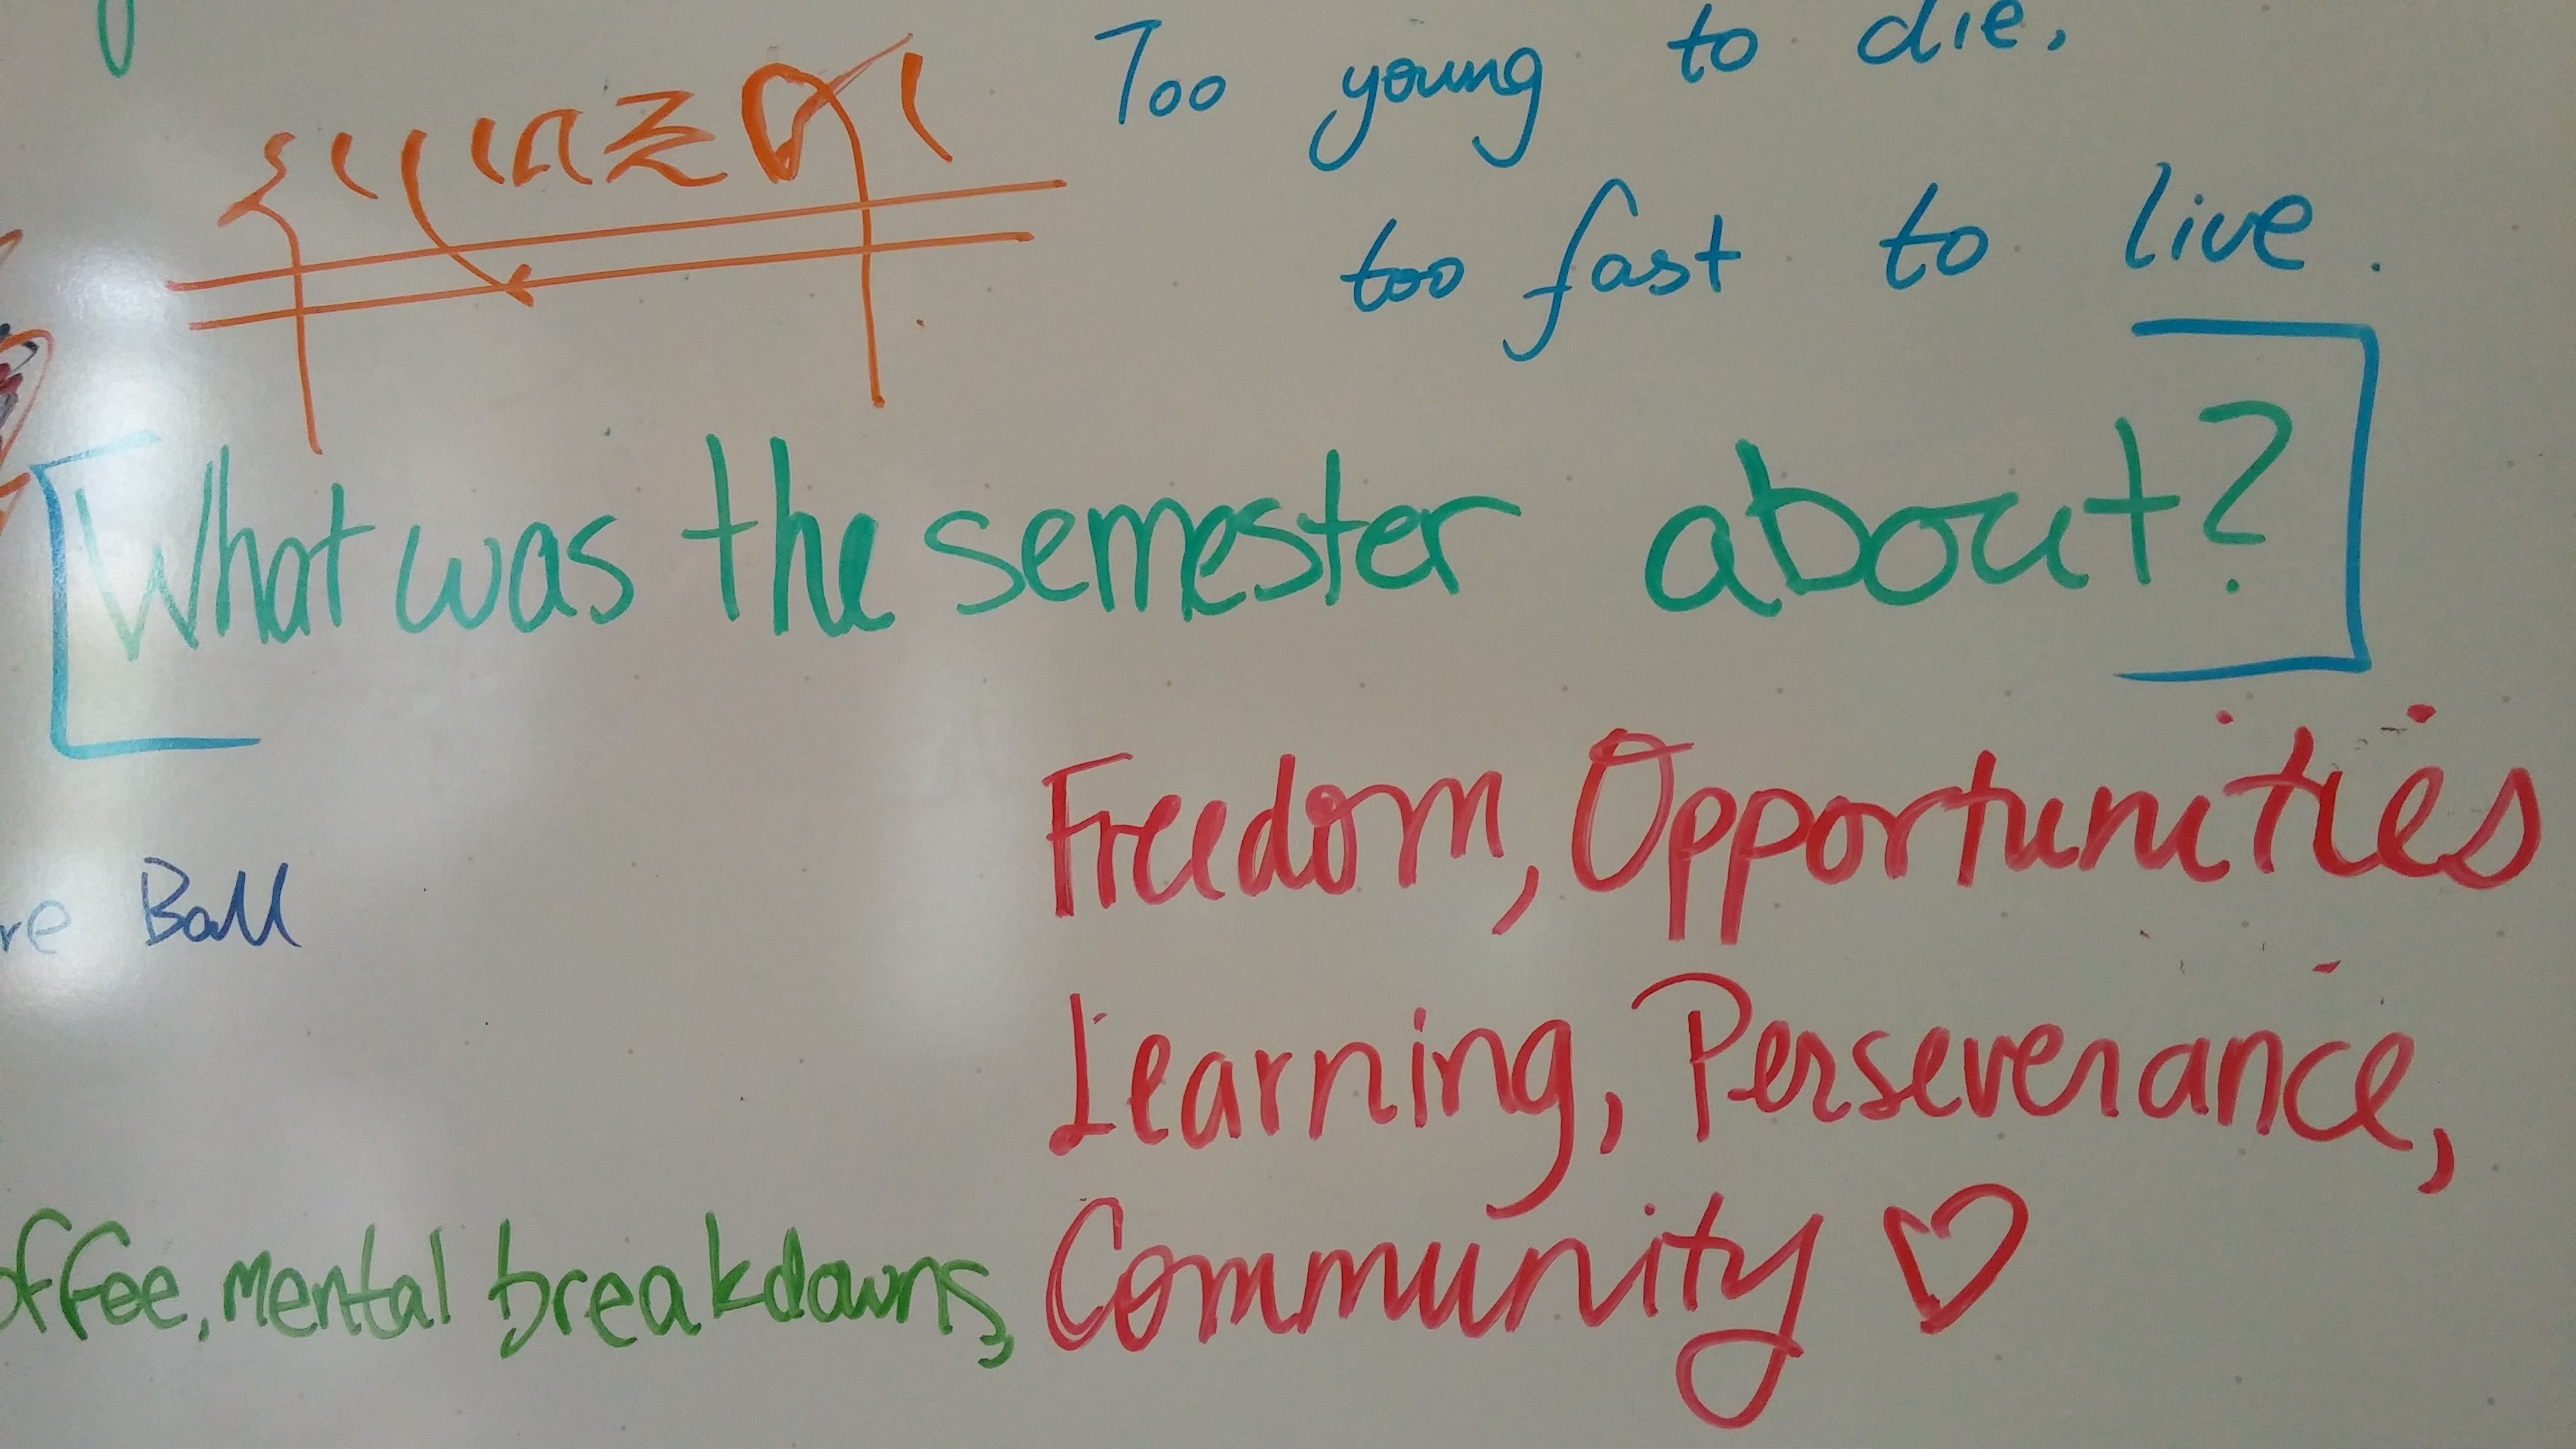 Too young to die.
too fast to live.
What was the semester about?
Freedom, Opportunities
Ball
Learning, Perseverance,
mental breakdowns, Community ♡